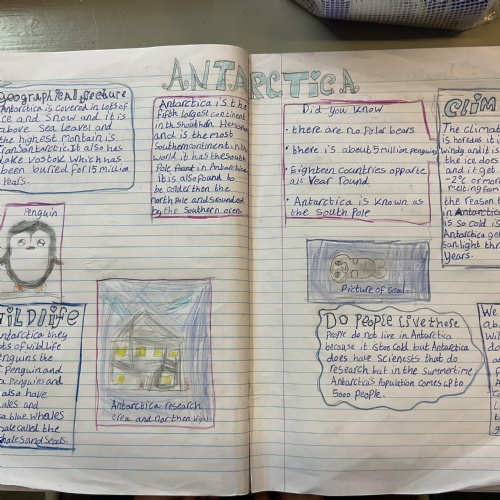 ANTARCTICA
geographical feature
Antarctica is covered in lots of
ice and snow and it is
above sea leavel and
the highest montain is
transantarctic it also has
lake vostok which has
been buried for 15 million
years.
Antarctica is the
fifth largest continent
in the southan Hemisphere
and is the most
Southern continent in the
world it has the South
Pole found in Antarctica
it is also found to
be colder then the
north Pole and surounded
by the Southern ocean.
Penguin
WildLife
Antarctica they
lots of wildlife
Penguins the
Penguin and
Penguins and
also have
whales and
blue whales
whale called the
whales and seals.
Antarctica research
area and northern lights
Did you know
• there are no Polar bears
• there is about 5 million penguins
• Eighteen countries opparte
all year round
• Antarctica is known as
the South Pole
CLIM
The climat
is hordes it i
windy and it is
the ice does
and it get
-2°c or more
melting from
the reason t
in Antarctica
is so cold is
Antarctica get
sunlight thr
years.
Picture of seal.
Do People Live there
People do not live in Antarctica
because it is too cold but Antarctica
does have scienests that do
research but in the summertime
Antarctica's Population comes up to
5000 people.
We
ab
Wil
do
a